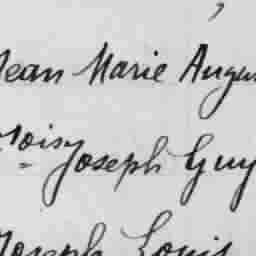 Jean Marie Augus
roisy Joseph Guy
Joseph Louis